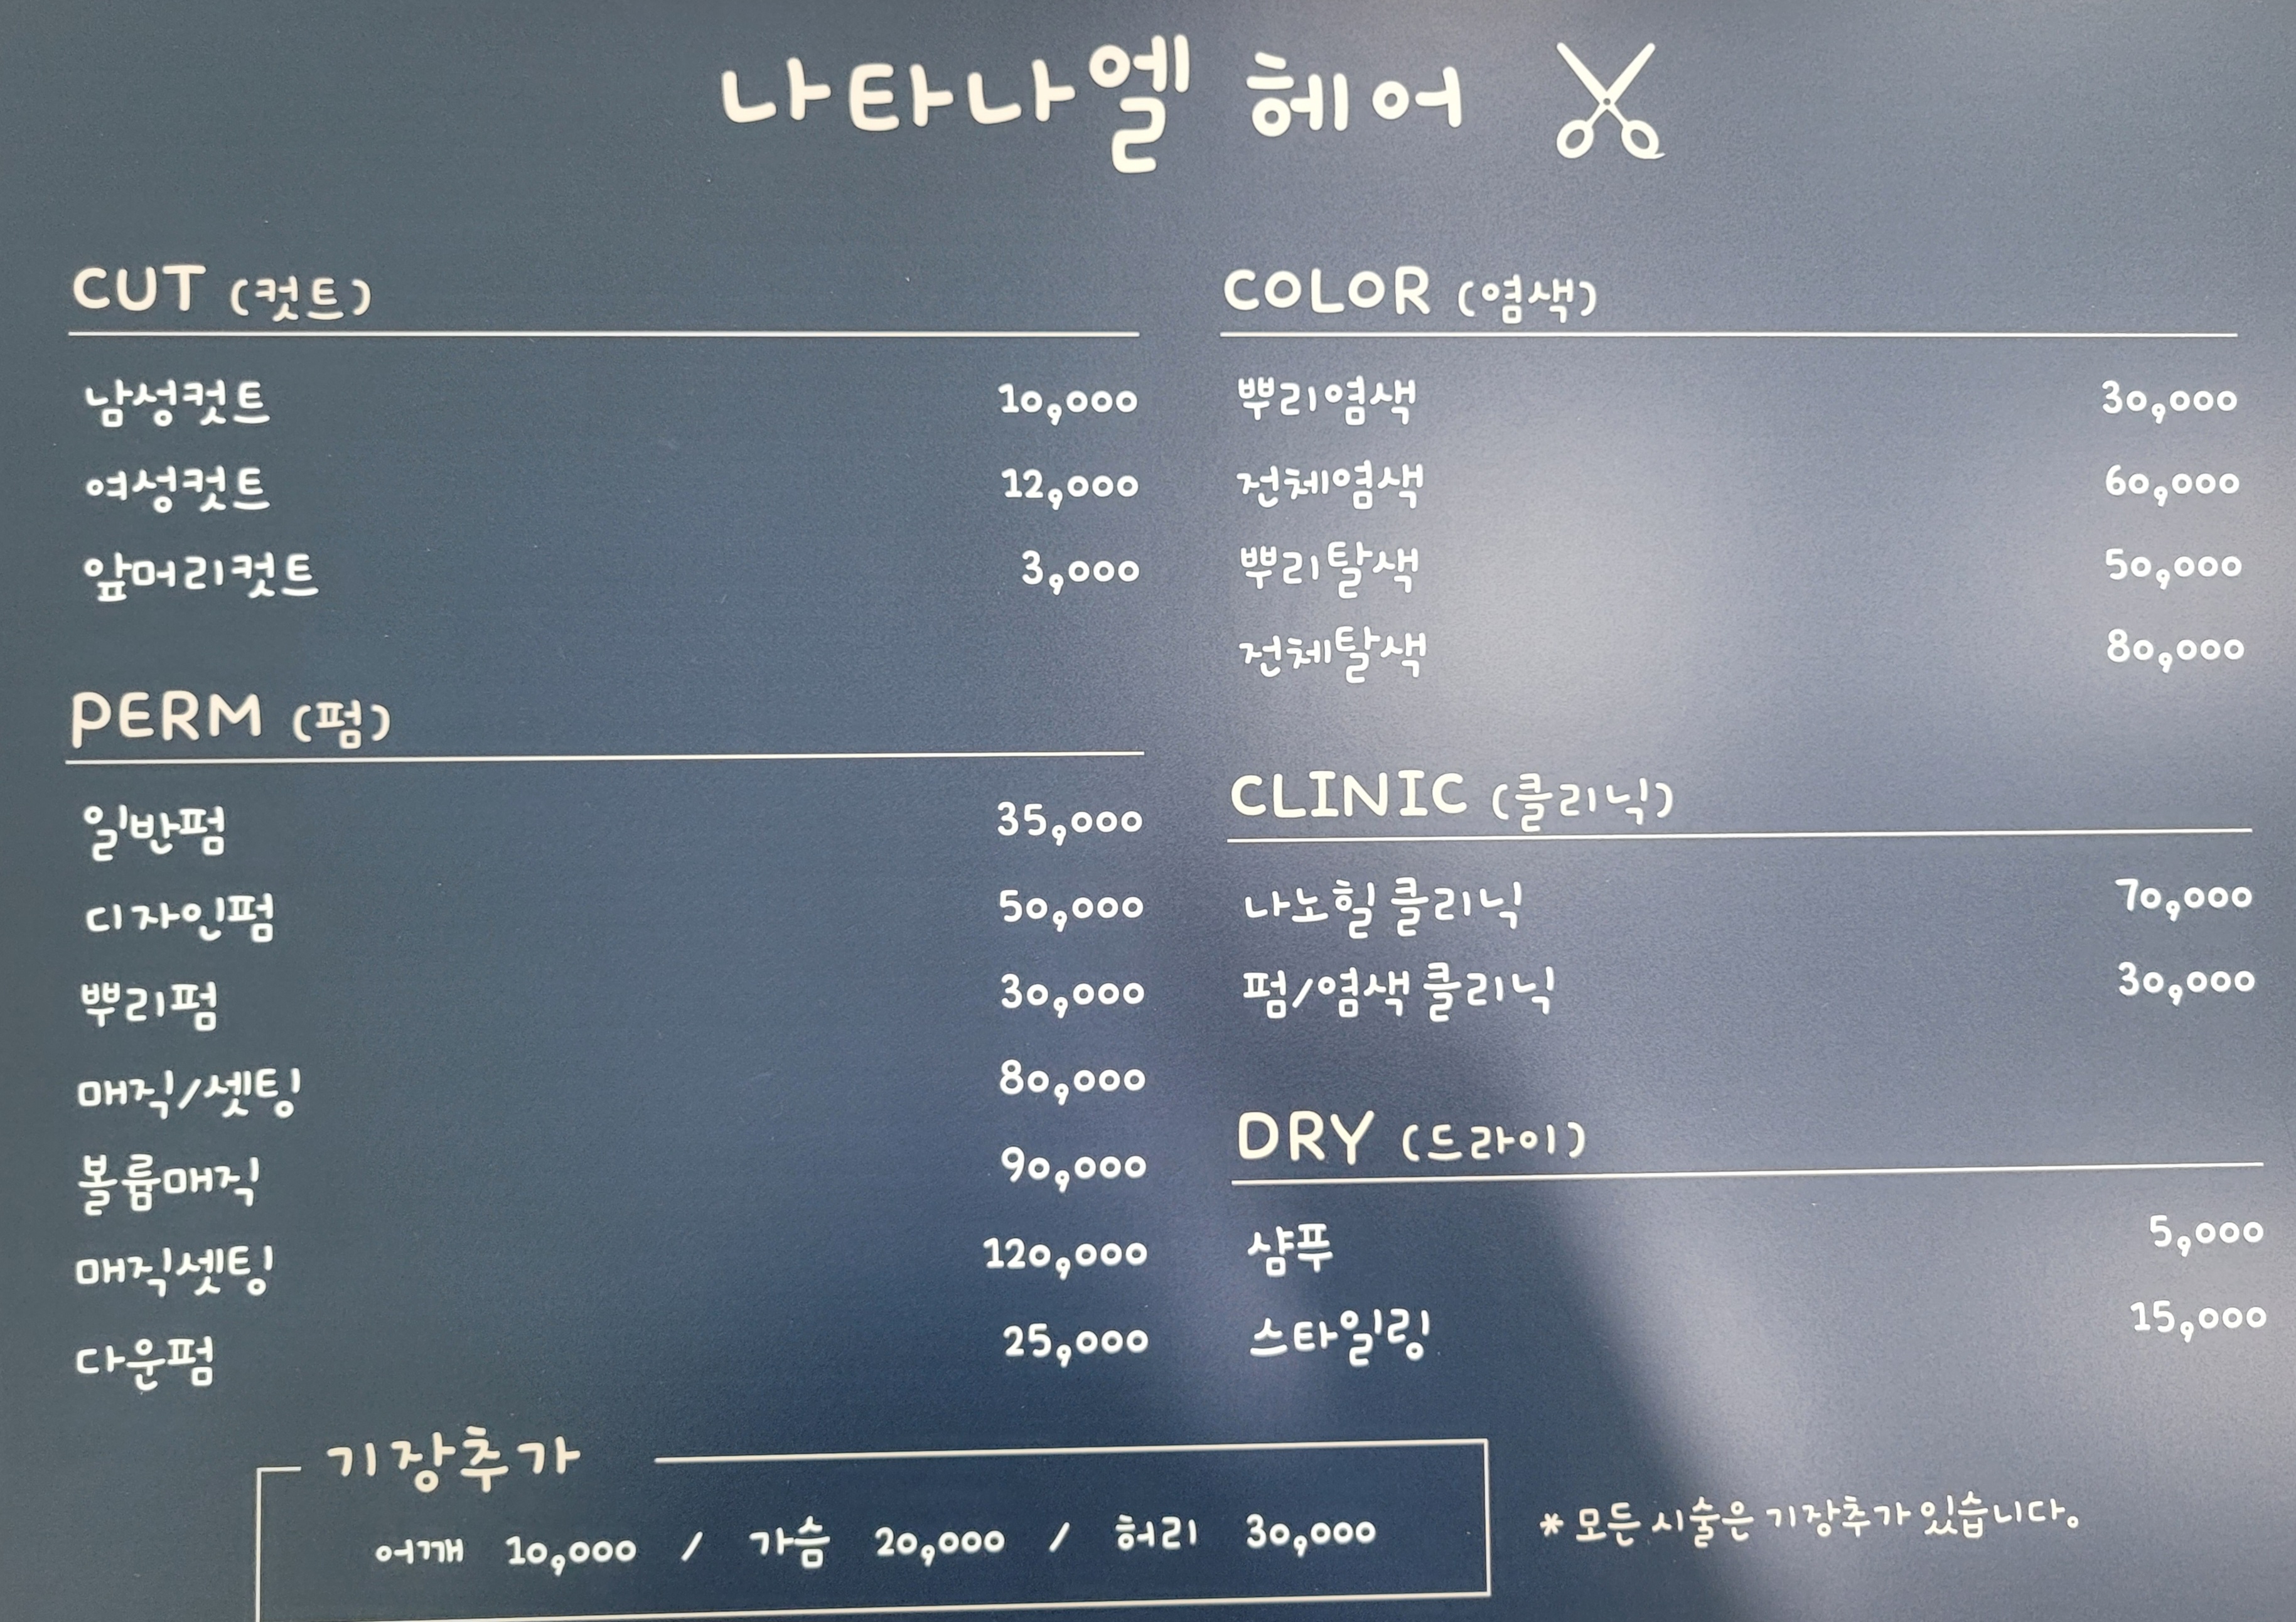 나타나엘 헤어
CUT (컷트)
남성컷트 10,000
여성컷트 12,000
앞머리컷트 3,000
PERM (펌)
일반펌 35,000
디자인펌 50,000
뿌리펌 30,000
매직/셋팅 80,000
볼륨매직 90,000
매직셋팅 120,000
다운펌 25,000
COLOR (염색)
뿌리염색 30,000
전체염색 60,000
뿌리탈색 50,000
전체탈색 80,000
CLINIC (클리닉)
나노힐 클리닉 70,000
펌/염색 클리닉 30,000
DRY (드라이)
샴푸 5,000
스타일링 15,000
기장추가
어깨 10,000 / 가슴 20,000 / 허리 30,000
* 모든 시술은 기장추가 있습니다.